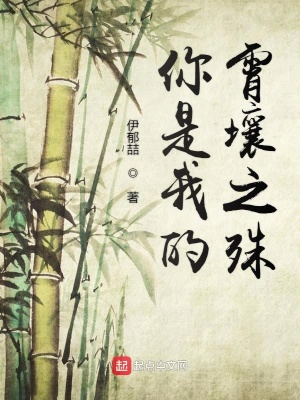 霄壤之殊
你是我的
伊郁喆 ◎ 著
起 起点中文网